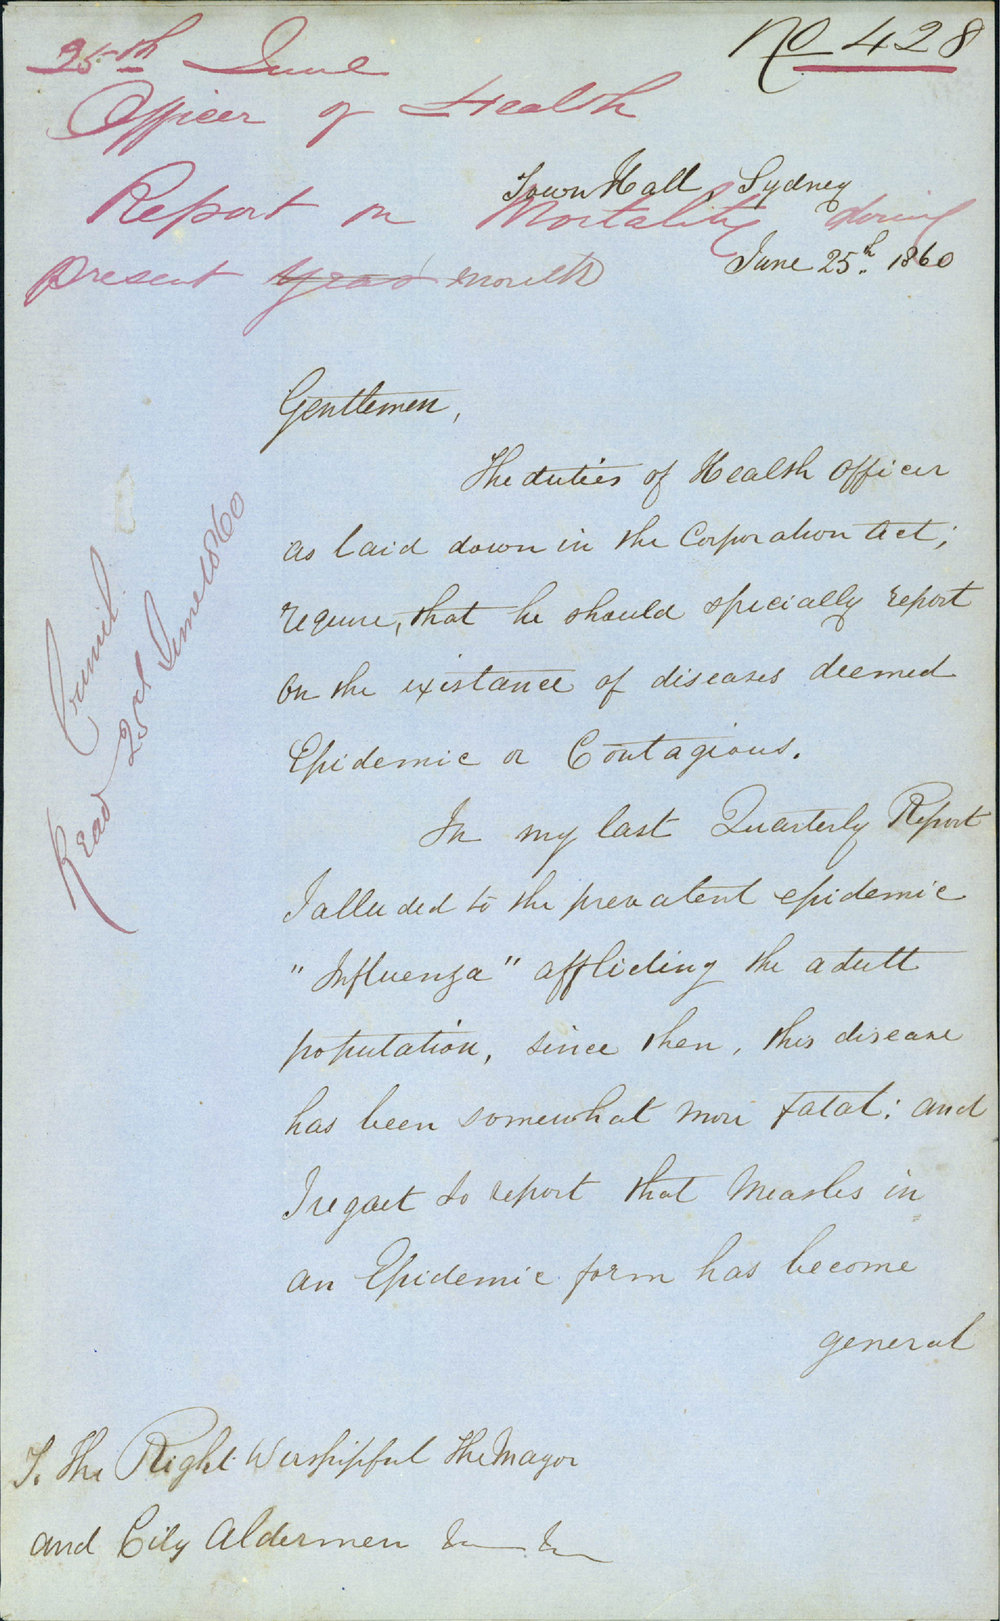 No 428
25th June
Officer of Health
Report on Mortality during
present year month
Town Hall, Sydney
June 25th. 1860
Gentlemen,
The duties of Health Officer
as laid down in the Corporation Act;
require, that he should specially report
on the existance of diseases deemed
Epidemic or Contagious.
In my last Quarterly Report
I alluded to the prevalent epidemic
"Influenza" afflicting the adult
population, since then, this disease
has been somewhat more fatal: and
I regret to report that Measles in
an Epidemic form has become
general
Council.
Read 25th June 1860
To The Right Worshipful The Mayor
and City Aldermen